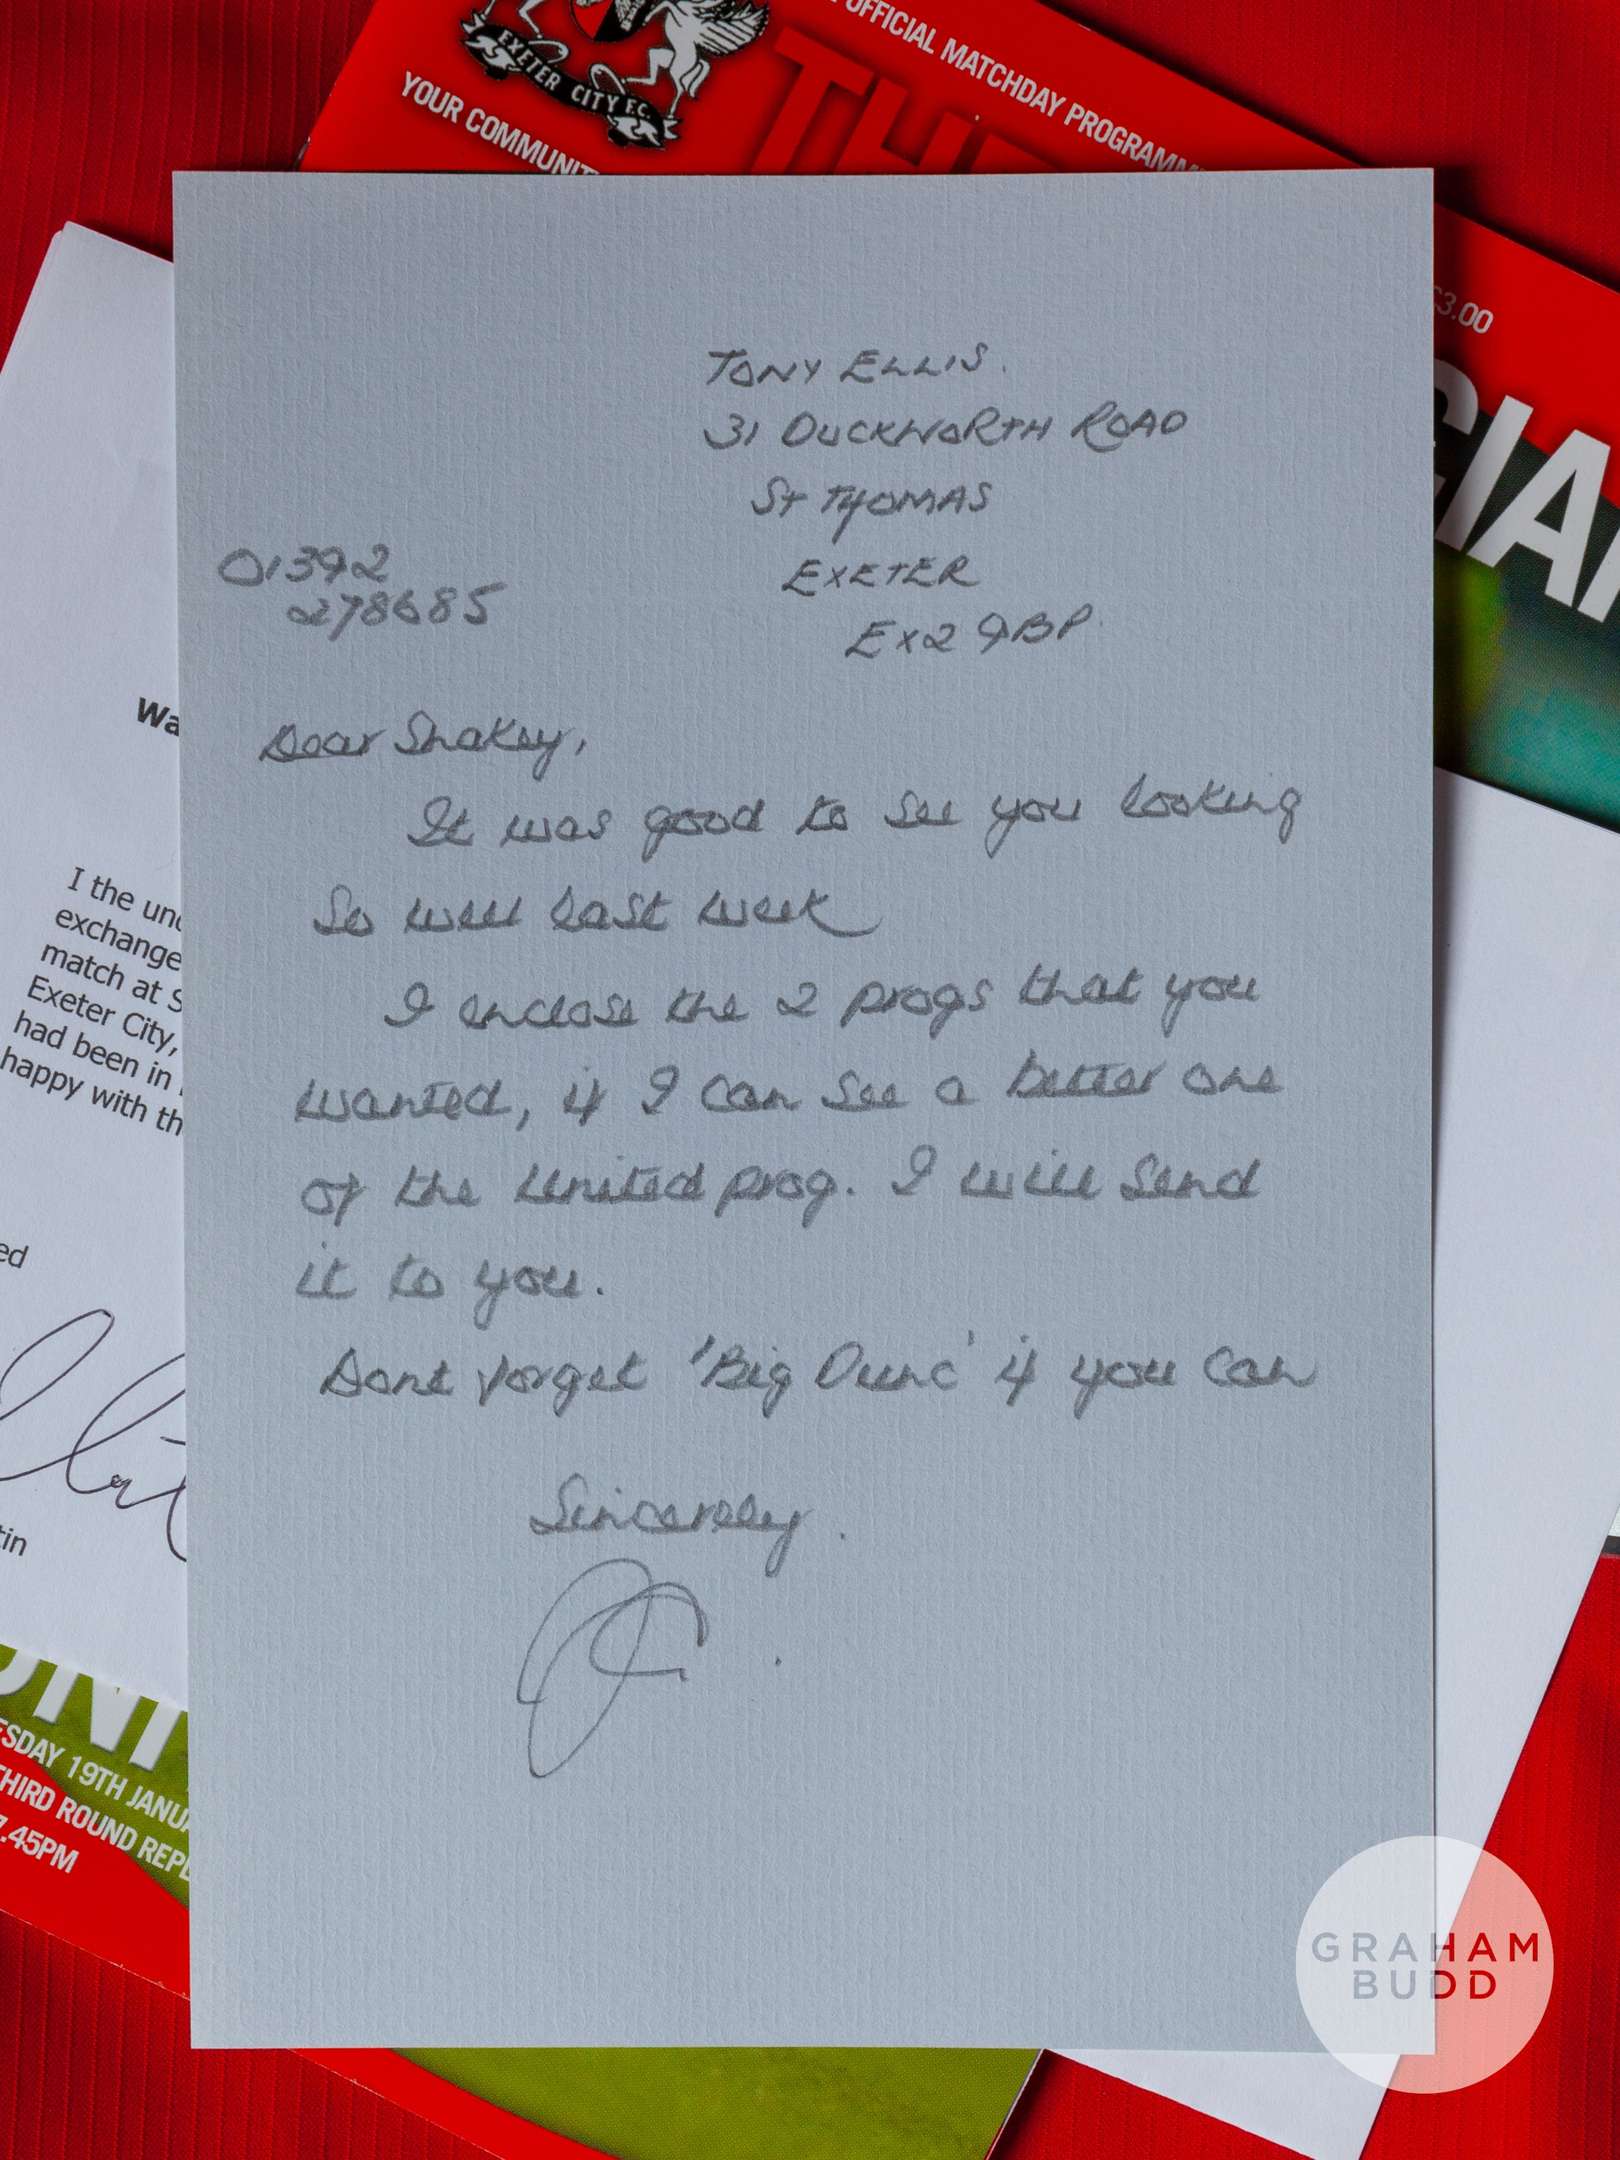 EXETER CITY F.C.
OFFICIAL MATCHDAY PROGRAMM
YOUR COMMUNIT
THE
£3.00
CIAL
TONY ELLIS.
31 DUCKWORTH ROAD
St THOMAS
EXETER
EX2 9BP.
01392
278685
Dear Shakey,
It was good to see you looking
so well last week
I enclose the 2 progs that you
wanted, if I can see a better one
of the United prog. I will send
it to you.
Dont forget 'Big Dunc' if you can
Sincerely.
Wa
I the und
exchange
match at S
Exeter City,
had been in
happy with th
ed
tin
UNI
ESDAY 19TH JANUA
THIRD ROUND REPL
7.45PM
GRAHAM
BUDD